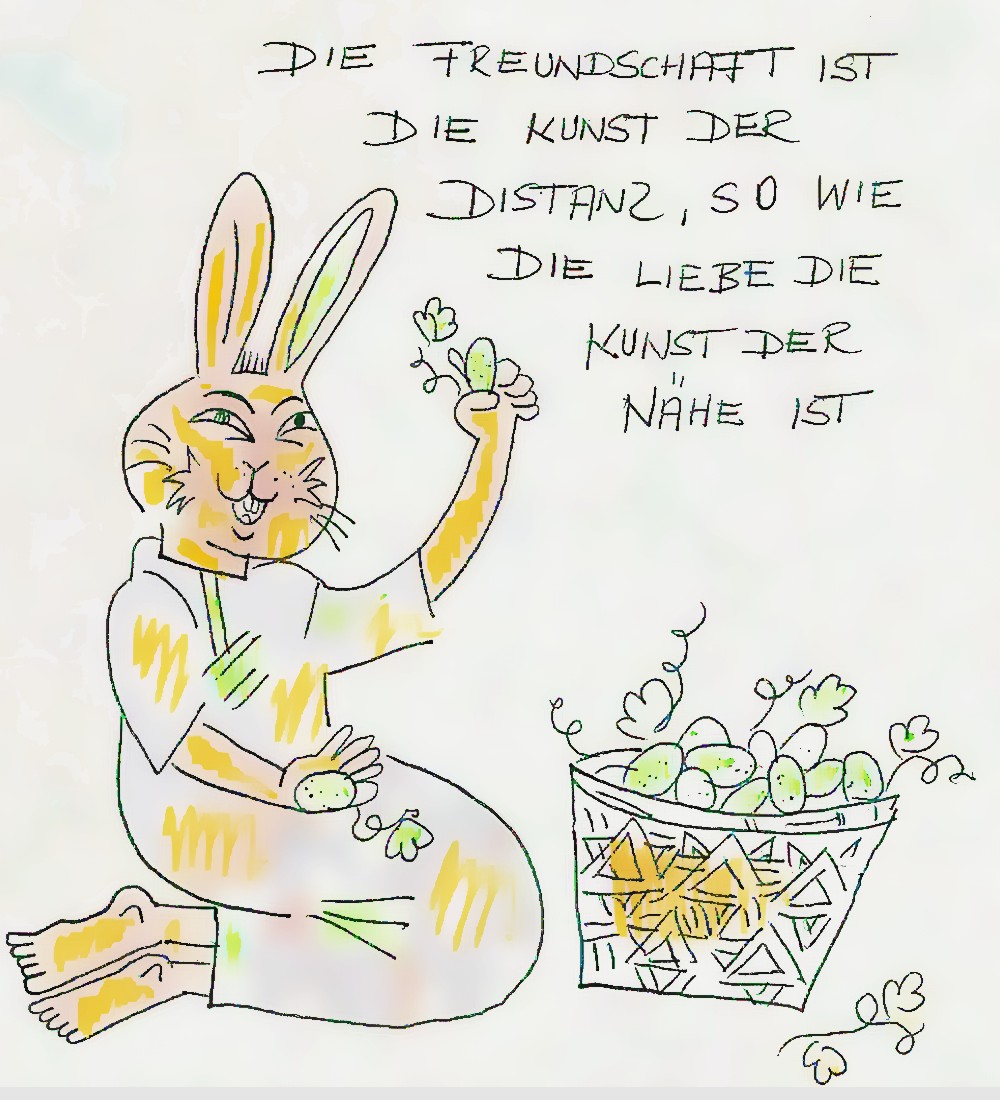 DIE FREUNDSCHAFT IST
DIE KUNST DER
DISTANZ, SO WIE
DIE LIEBE DIE
KUNST DER
NÄHE IST